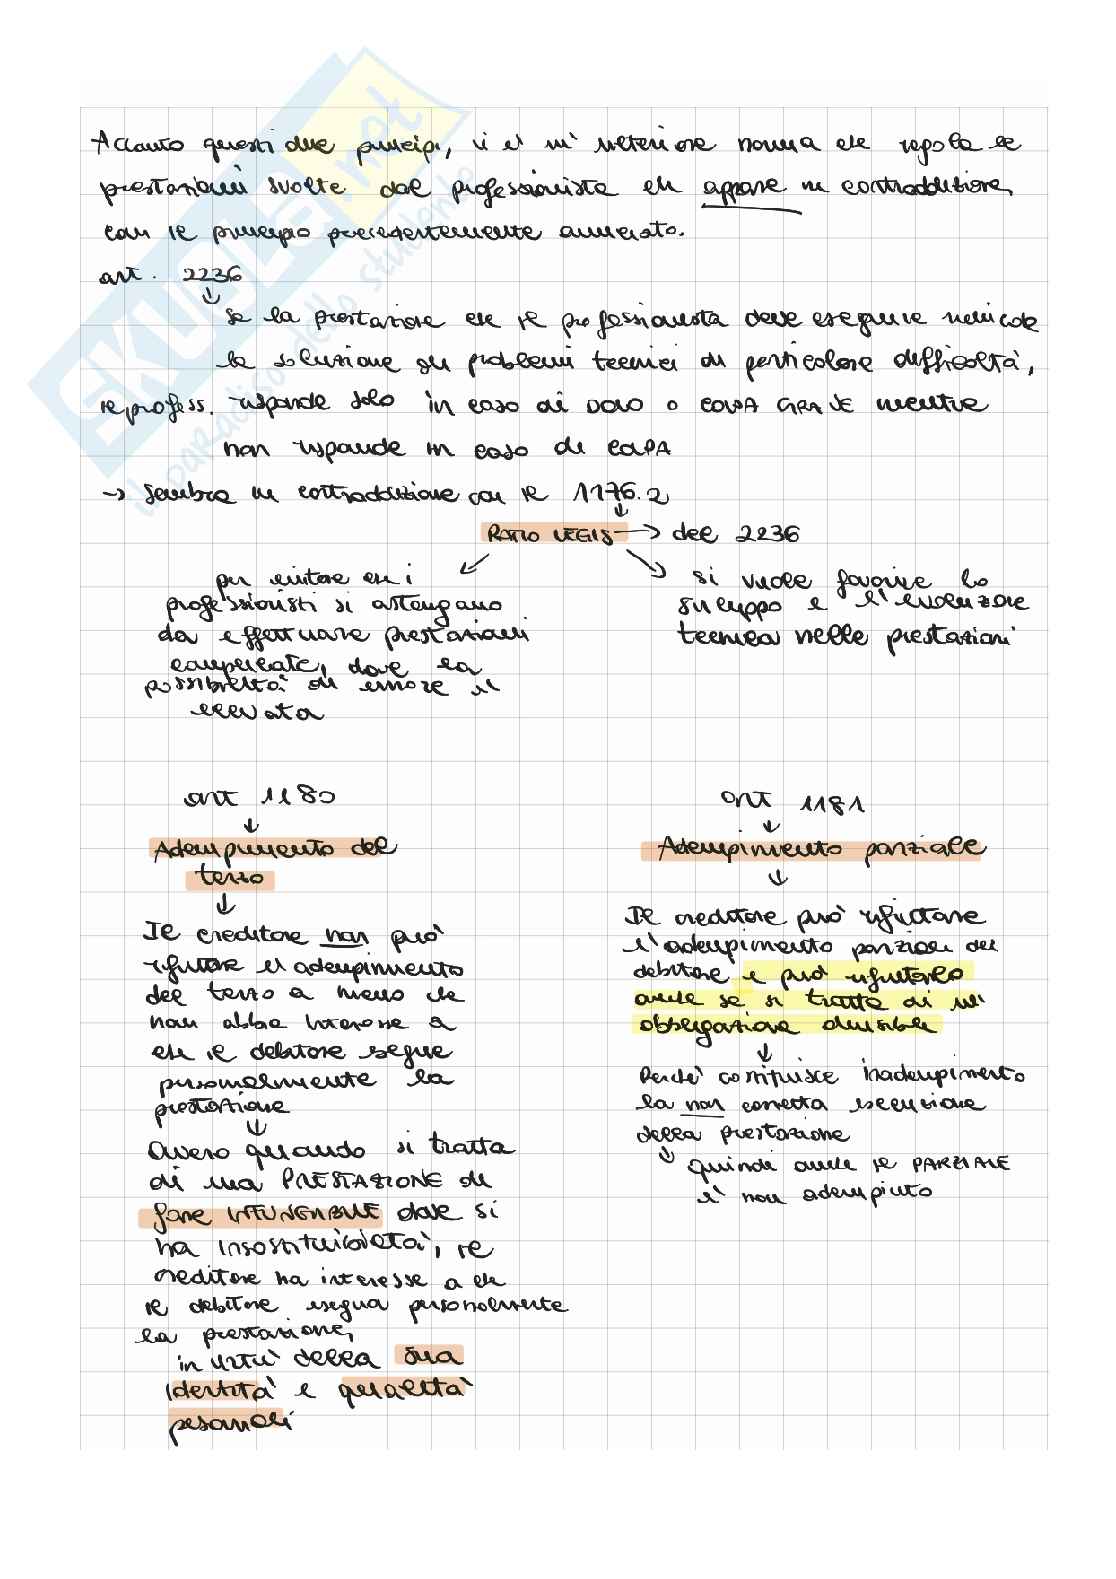 Accanto questi due principi, vi è un'ulteriore norma che regola le
prestazioni svolte dal professionista che appare in contraddizione
con il principio precedentemente annunciato.
art. 2236
↓
se la prestazione che il professionista deve eseguire richiede
la soluzione di problemi tecnici di particolare difficoltà,
il profess. risponde solo in caso di DOLO o COLPA GRAVE mentre
non risponde in caso di COLPA
→ sembra in contraddizione con il 1176.2
↓
RATIO LEGIS → del 2236
per evitare che i
professionisti si astengano
da effettuare prestazioni
complicate, dove la
possibilità di errore è
elevata
si vuole favorire lo
sviluppo e l'evoluzione
tecnica nelle prestazioni
art 1180
↓
Adempimento del
terzo
↓
Il creditore non può
rifiutare l'adempimento
del terzo a meno che
non abbia interesse a
che il debitore esegue
personalmente la
prestazione
↓
Ovvero quando si tratta
di una PRESTAZIONE di
fare INFUNGIBILE dove si
ha insostituibilità, il
creditore ha interesse a che
il debitore esegua personalmente
la prestazione,
in virtù della sua
identità e qualità
personali
art 1181
↓
Adempimento parziale
↓
Il creditore può rifiutare
l'adempimento parziale del
debitore e può rifiutarlo
anche se si tratta di un'
obbligazione divisibile
↓
Perché costituisce inadempimento
la non corretta esecuzione
della prestazione
↳ quindi anche il PARZIALE
è non adempiuto
SKUOLA.net
il paradiso dello studente